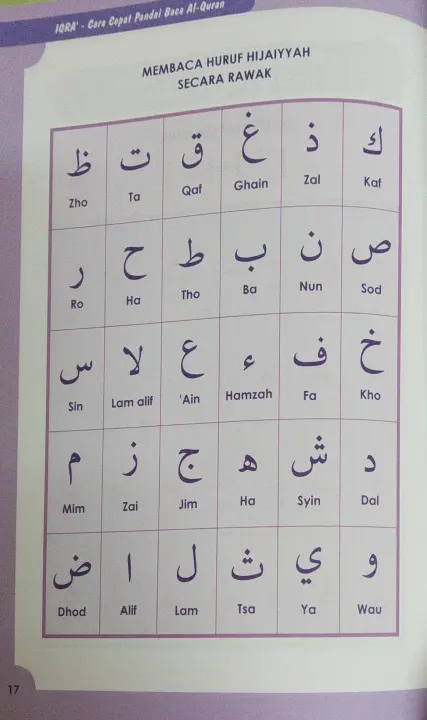 IQRA' - Cara Cepat Pandai Baca Al-Quran
MEMBACA HURUF HIJAIYYAH
SECARA RAWAK
ك ذ غ ق ت ظ
Zho Ta Qaf Ghain Zal Kaf
ص ن ب ط ح ر
Ro Ha Tho Ba Nun Sod
خ ف ء ع لا س
Sin Lam alif 'Ain Hamzah Fa Kho
د ش ه ج ز م
Mim Zai Jim Ha Syin Dal
و ي ث ل ا ض
Dhod Alif Lam Tsa Ya Wau
17